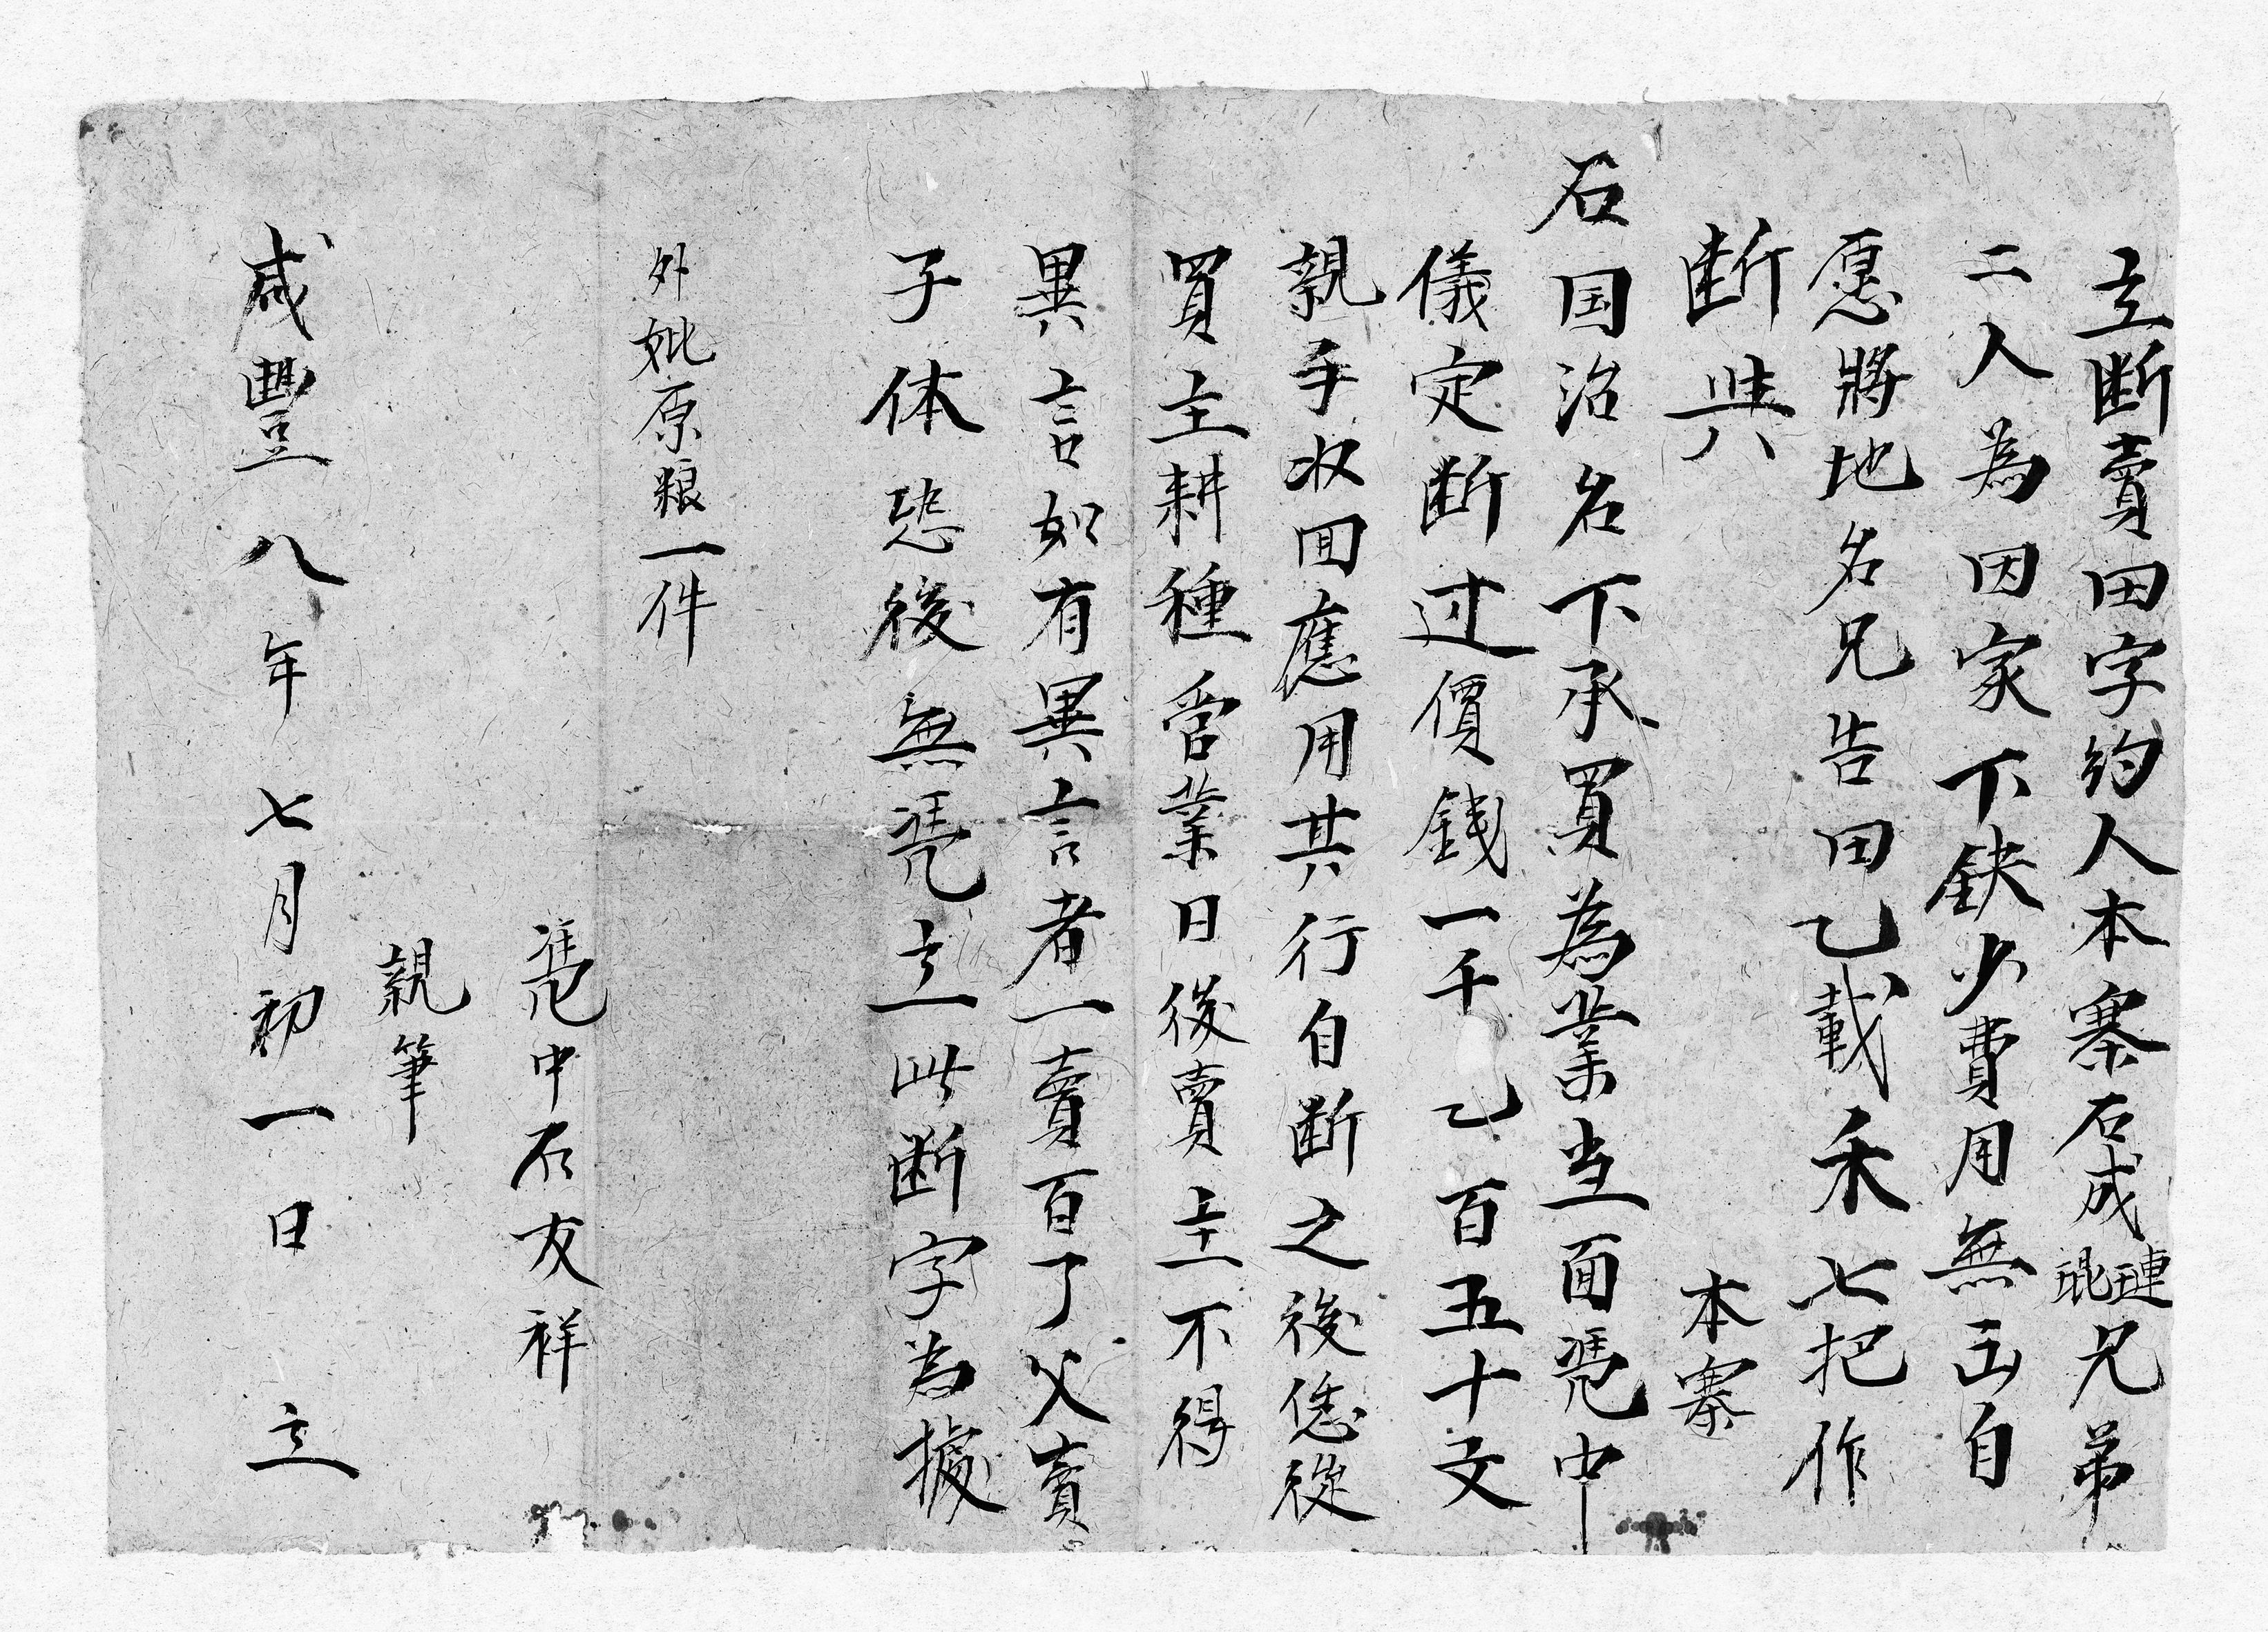 立断賣田字約人本寨石成璉琨兄弟
二人為因家下缺少費用無出自
愿將地名兄告田乙載禾七把作
断與　本寨
石国治名下承買為業当面凴中
儀定断过價錢一千乙百五十文
親手收回應用其行自断之後恁從
買主耕種管業日後賣主不得
異言如有異言者一賣百了父賣
子体恐後無凴立此断字為據
外妣原粮一件
凴中石友祥
親筆
咸豐八年七月初一日　立